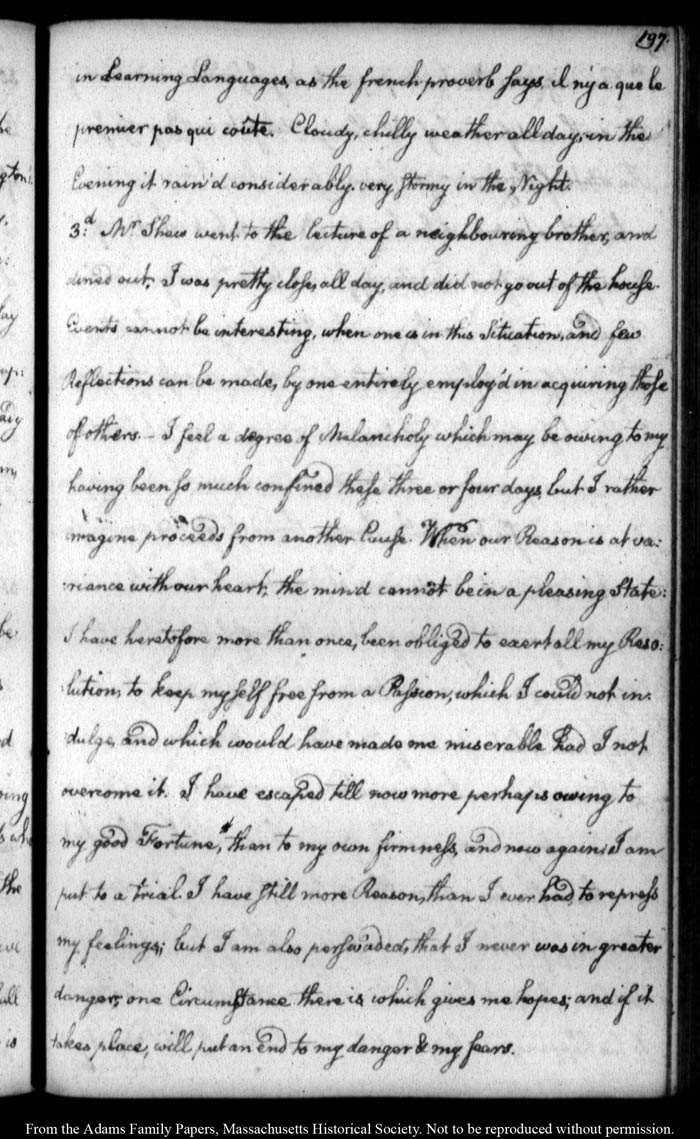 197.
in Learning Languages, as the french proverb says, il n'y a que le
premier pas qui coûte. Cloudy, chilly weather all day; in the
Evening it rain'd considerably. very stormy in the Night.
3.d Mr. Shaw went to the lecture of a neighbouring brother, and
dined out; I was pretty close, all day, and did not go out of the house.
Events cannot be interesting, when one is in this Situation, and few
Reflections can be made, by one entirely employ'd in acquiring those
of others.— I feel a degree of Melancholy which may be owing to my
having been so much confined these three or four days, but I rather
imagine proceeds from another Cause. When our Reason is at va:
:riance with our heart, the mind cannot be in a pleasing State:
I have heretofore more than once, been obliged to exert all my Reso:
:lution, to keep myself free from a Passion, which I could not in:
:dulge, and which would have made me miserable had I not
overcome it. I have escaped till now more perhaps owing to
my good Fortune, than to my own firmness, and now again I am
put to a trial. I have still more Reason, than I ever had, to repress
my feelings; but I am also perswaded, that I never was in greater
danger; one Circumstance there is which gives me hopes; and if it
takes place, will put an end to my danger & my fears.
From the Adams Family Papers, Massachusetts Historical Society. Not to be reproduced without permission.